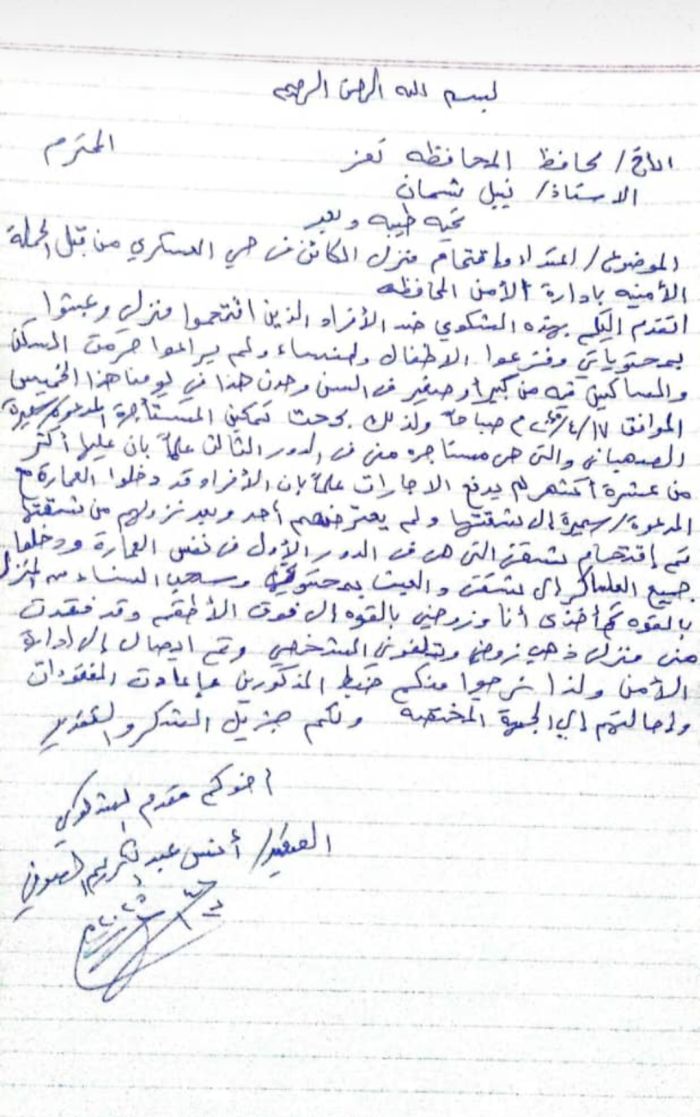 بسم الله الرحمن الرحيم
الاخ/ محافظ المحافظه تعز المحترم
الاستاذ/ نبيل شمسان
تحيه طيبه وبعد
الموضوع/ اعتداء واقتحام منزلي الكائن في حي العسكري من قبل الحملة
الأمنيه بادارة الأمن المحافظه
اتقدم اليكم بهذه الشكوي ضد الأفراد الذين اقتحموا منزلي وعبثوا
بمحتوياتي وفزعوا الاطفال والنساء ولم يراعوا حرمت السكن
والساكنين فيه من كبير أو صغير في السن وحدث هذا في يومنا هذا الخميس
الموافق ١٧/٤/ م صباحاً وذلك بحجت تمكين المستأجرة المدعوه/ سميرة
والتي هي مستاجره مني في الدور الثالث علماً بان عليها أكثر
من عشرة أشهر لم يدفع الاجارات علماً بان الأفراد قد دخلوا العمارة مع
المدعوة/ سميرة إلى شقتها ولم يعترضهم أحد وبعد نزولهم من شقتها
تم إقتحام شقتي التي هي في الدور الأول في نفس العمارة ودخلوا
جميع العساكر إلى شقتي والعبث بمحتوياتي وسحب النساء من المنزل
بالقوه تم أخذي أنا وزوجتي بالقوه إلى فوق الأطقم وقد فقدت
من منزلي ذهب زوجتي وتلفوني الشخصي وتم ايصال إلى ادارة
الأمن ولذا نرجوا منكم ضبط المذكورين وإعادت المفقودات
واحالتهم إلي الجهة المختصه ولكم جزيل الشكر والتقدير
اخوكم مقدم الشكوي
/ أنس عبدالكريم الصوفي